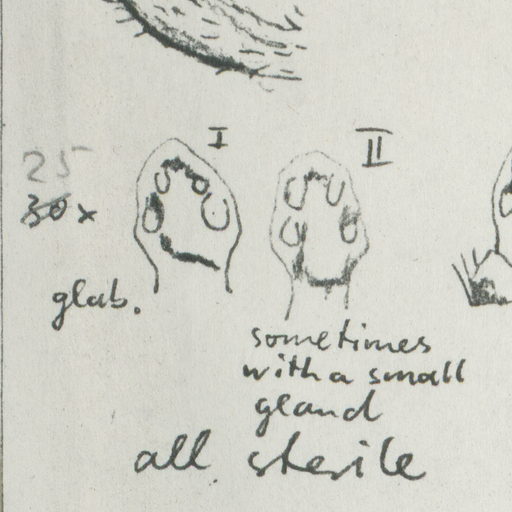 I
II
25
30 x
glab.
sometimes
with a small
gland
all sterile